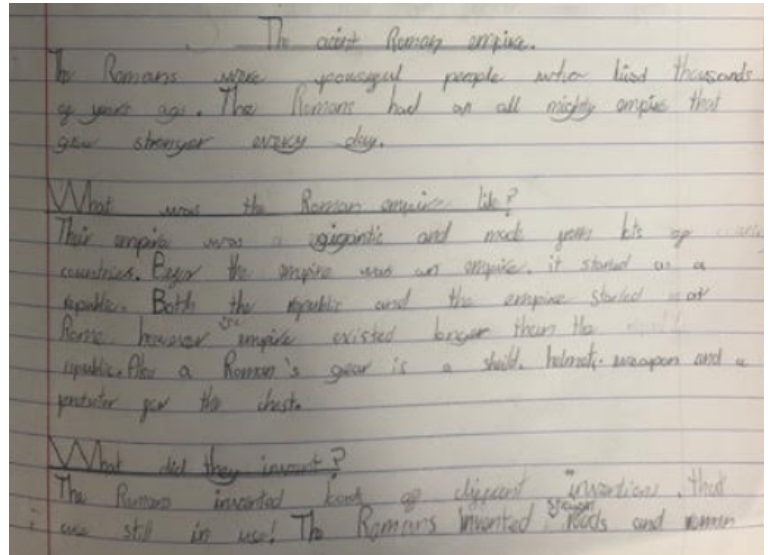 The acint Roman empire.
The Romans were powerful people who lived thousands
of years ago. The Romans had an all mighty empire that
grew stronger every day.
What was the Roman empire like?
Their empire was a gigantic and made from lots of
countries. Befor the empire was an empire. it started as a
republic. Both the republic and the empire started at
Rome however the empire existed longer than the
republic. Also a Roman's gear is a sheild. helmet. weapon and a
protecter for the chest.
What did they invent?
The Romans invented loads of diffrent inventions that
are still in use! The Romans Invented straight roads and roman